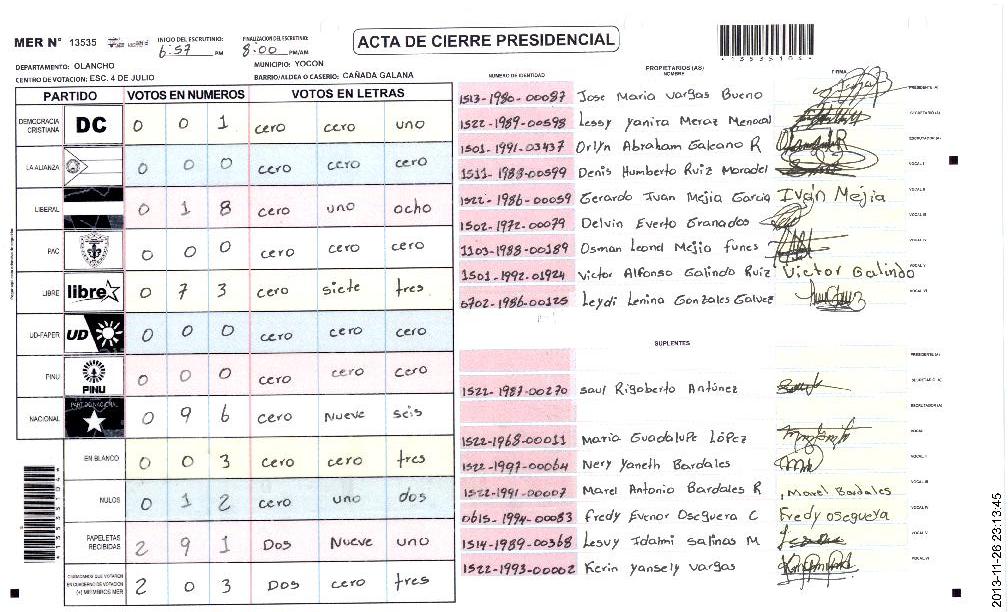 MER N° 13535
INICIO DEL ESCRUTINIO: 6:57 PM
FINALIZACION DEL ESCRUTINIO: 8:00 PM/AM
ACTA DE CIERRE PRESIDENCIAL
DEPARTAMENTO: OLANCHO
MUNICIPIO: YOCON
CENTRO DE VOTACION: ESC. 4 DE JULIO
BARRIO/ALDEA O CASERIO: CAÑADA GALANA
PARTIDO VOTOS EN NUMEROS VOTOS EN LETRAS
DEMOCRACIA CRISTIANA DC 0 0 1 cero cero uno
LA ALIANZA 0 0 0 cero cero cero
LIBERAL 0 1 8 cero uno ocho
PAC 0 0 0 cero cero cero
LIBRE libre 0 7 3 cero siete tres
UD-FAPER UD 0 0 0 cero cero cero
PINU PINU 0 0 0 cero cero cero
NACIONAL PARTIDO NACIONAL 0 9 6 cero Nueve seis
EN BLANCO 0 0 3 cero cero tres
NULOS 0 1 2 cero uno dos
PAPELETAS RECIBIDAS 2 9 1 Dos Nueve uno
CIUDADANOS QUE VOTARON EN CUADERNO DE VOTACION (+) MIEMBROS MER 2 0 3 Dos cero tres
PROPIETARIOS (AS)
NUMERO DE IDENTIDAD NOMBRE FIRMA
1513-1980-00087 Jose Maria Vargas Bueno PRESIDENTE (A)
1522-1989-00598 Lessy Yanira Meraz Mencoal SECRETARIO (A)
1501-1991-03437 Orlyn Abraham Galeano R ESCRUTADOR (A)
1511-1983-00599 Denis Humberto Ruiz Moradel VOCAL I
1522-1986-00059 Gerardo Ivan Mejia Garcia Iván Mejia VOCAL II
1502-1972-00079 Delvin Everto Granados VOCAL III
1103-1988-00189 Osman Leond Mejio funes VOCAL IV
1501-1992-01924 Victor Alfonso Galindo Ruiz Victor Galindo VOCAL V
0702-1986-00125 Leydi Lenina Gonzales Galvez VOCAL VI
SUPLENTES
PRESIDENTE (A)
1522-1987-00270 saul Rigoberto Antúnez SECRETARIO (A)
ESCRUTADOR (A)
1522-1968-00011 Maria Guadalupe López VOCAL I
1522-1997-00064 Nery Yaneth Bardales VOCAL II
1522-1991-00007 Marel Antonio Bardales R Marel Bardales VOCAL III
0615-1994-00083 Fredy Evenor Oseguera C Fredy oseguera VOCAL IV
1514-1989-00368 Lesvy Idalmi salinas M VOCAL V
1522-1993-00002 Kerin yansely vargas VOCAL VI
2013-11-26 23:13:45